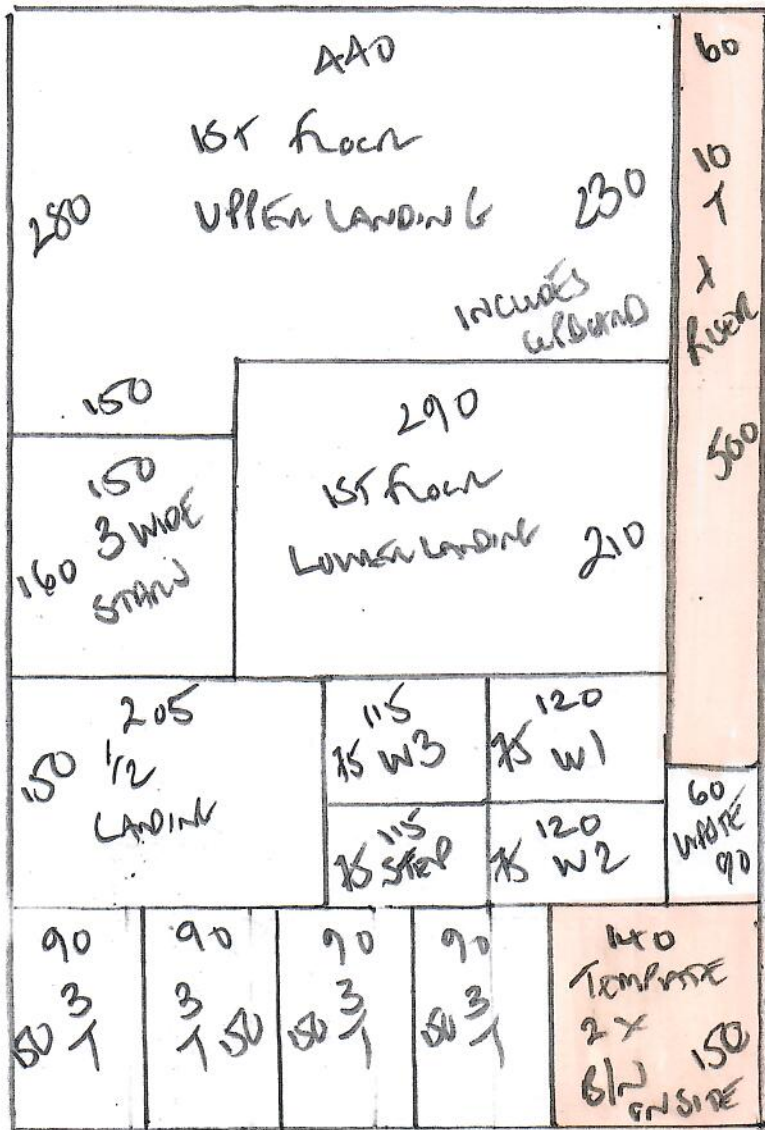 440
1ST FLOOR
UPPER LANDING
280
230
INCLUDES
CUPBOARD
150
60
10
T
X
RISER
500
150
3 WIDE
160
STAIRS
290
1ST FLOOR
LOWER LANDING
210
205
150
1/2
LANDING
115
75 W3
120
75 W1
115
75 STEP
120
75 W2
60
WASTE
90
90
3
150 T
90
3
T 150
90
3
150 T
90
3
150 T
140
TEMPLATE
2 X
B/N
150
ONSIDE